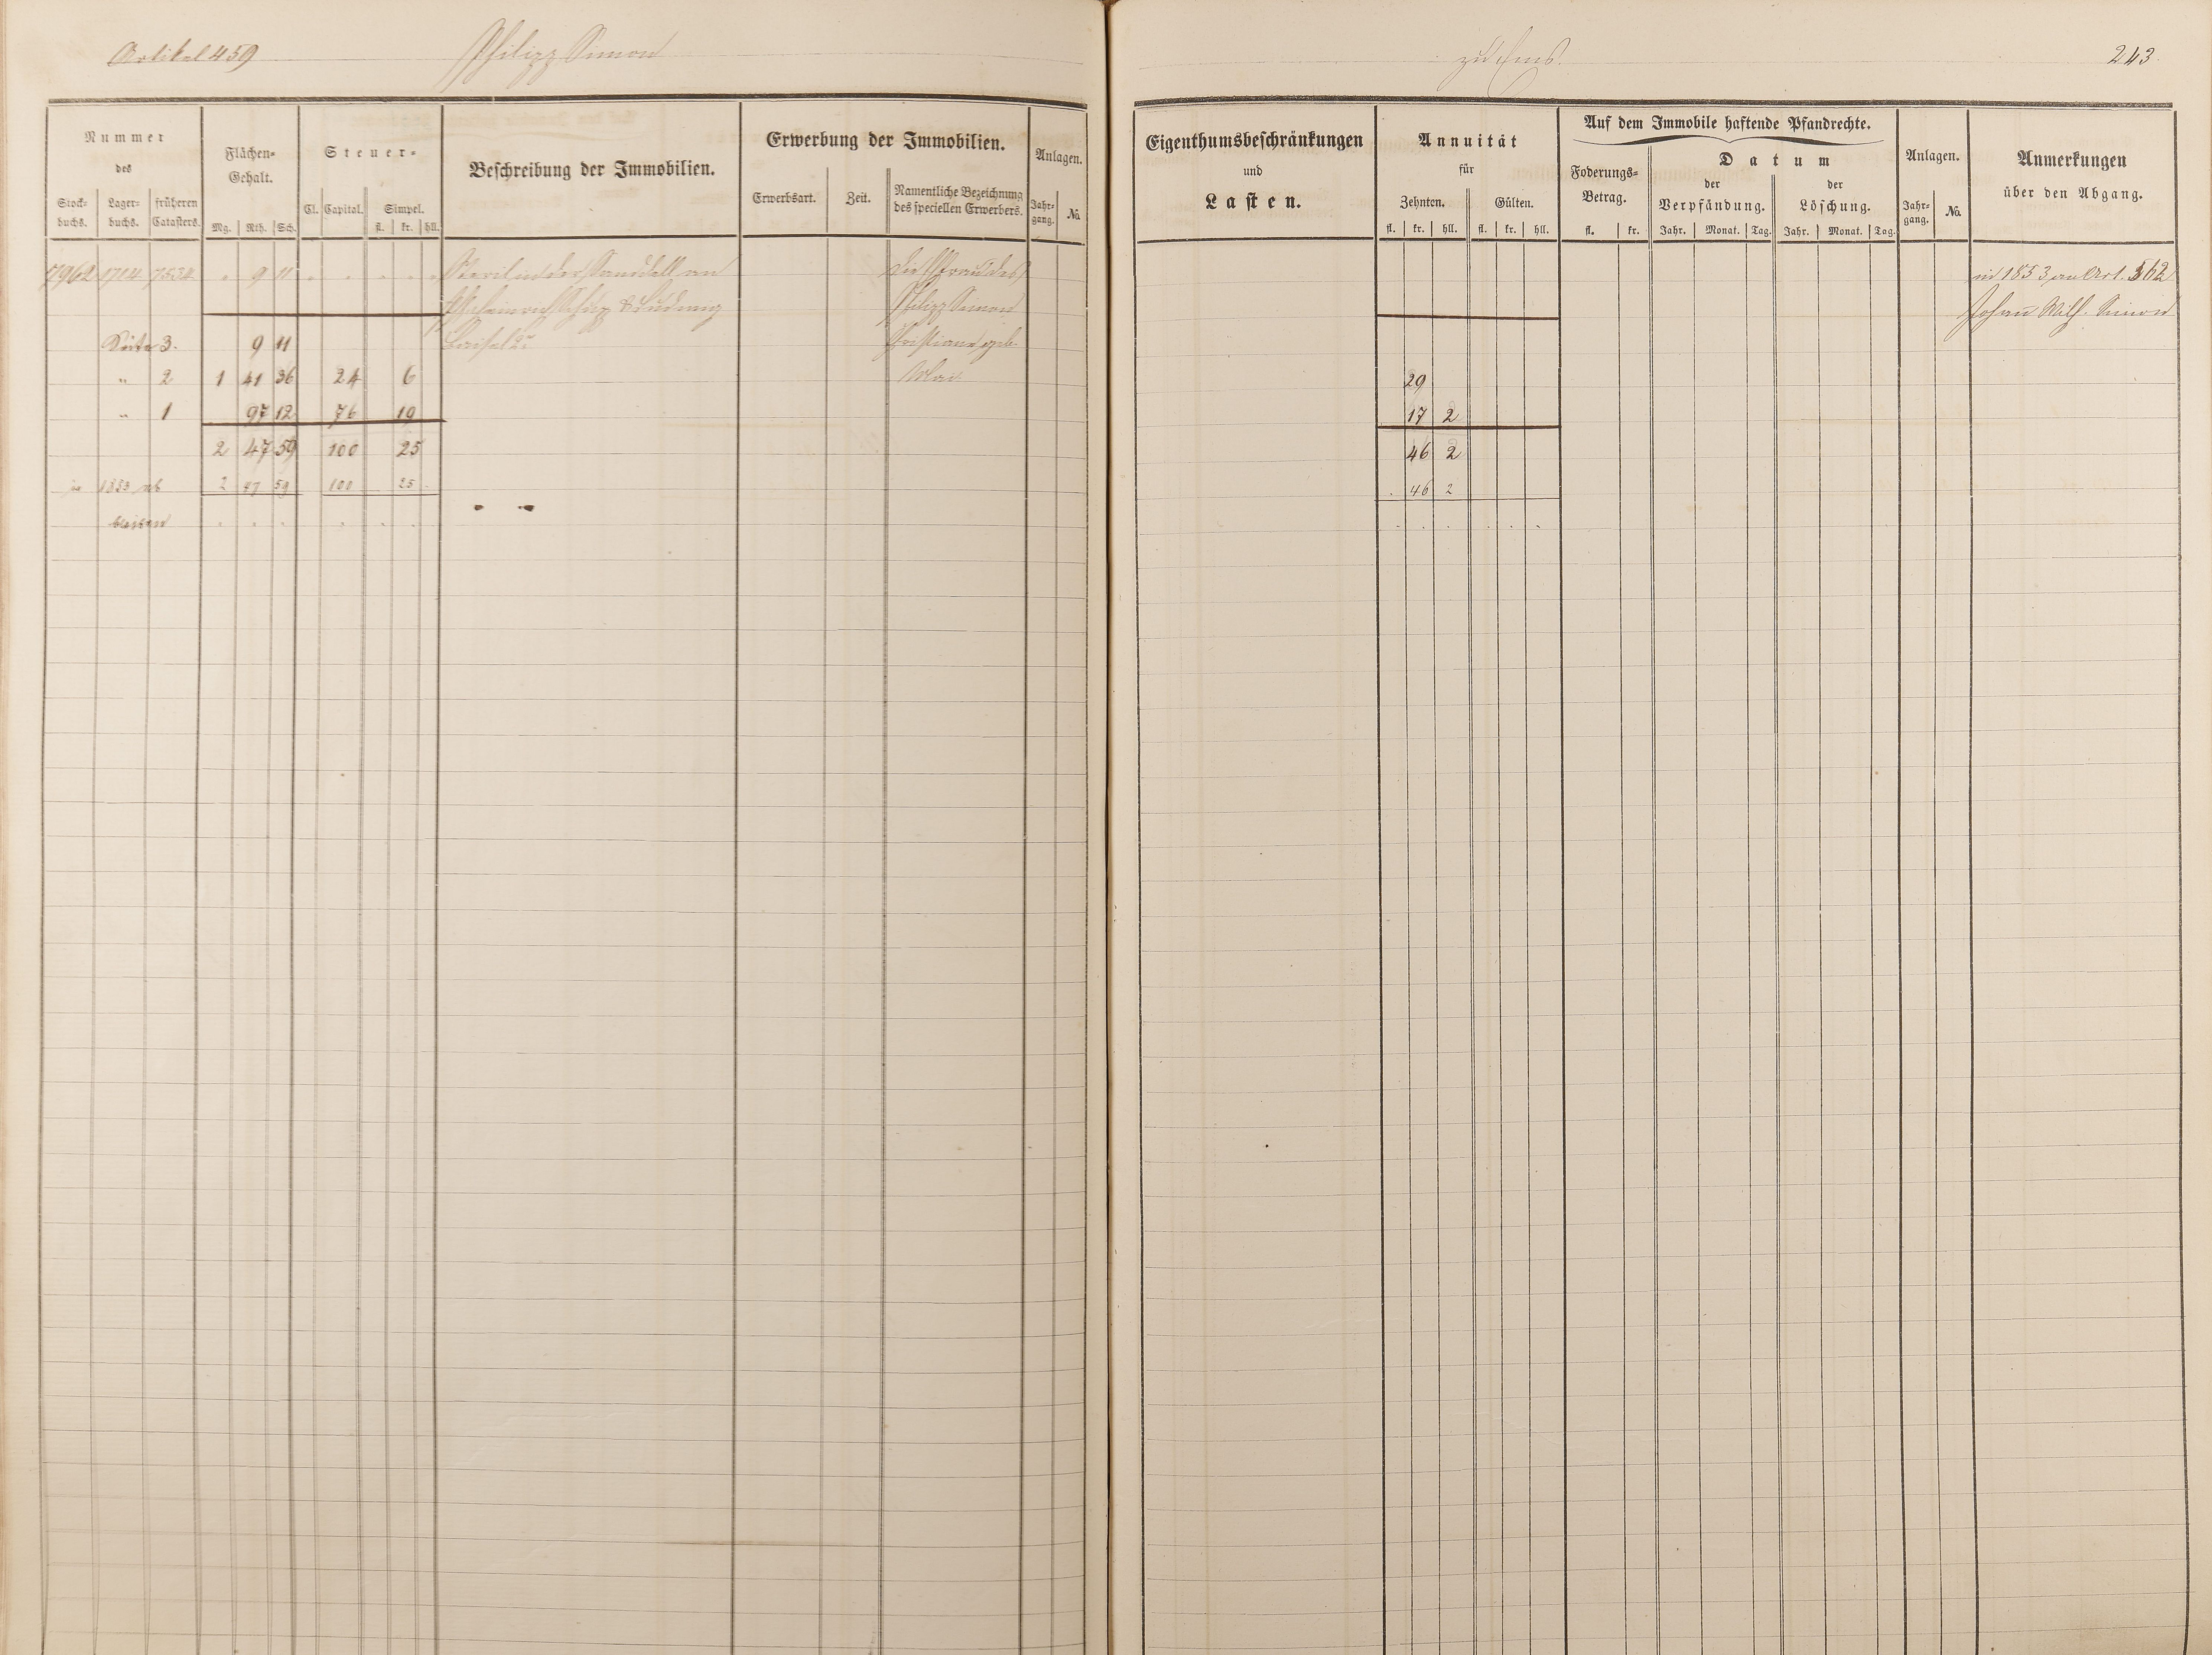 Artikel 459 Philipp Simon zu Ems. 243
Nummer
des
Stockbuchs. Lagerbuchs. früheren Catasters.
Flächen-Gehalt.
Mg. Rth. Sch.
Steuer-
Cl. Capital. Simpel.
fl. kr. hll.
Beschreibung der Immobilien.
Erwerbung der Immobilien.
Erwerbsart. Zeit. Namentliche Bezeichnung des speciellen Erwerbers.
Anlagen.
Jahrgang. No.
Eigenthumsbeschränkungen
und
Lasten.
Annuität
für
Zehnten. Gülten.
fl. kr. hll. fl. kr. hll.
Auf dem Immobile haftende Pfandrechte.
Foderungs-Betrag.
fl. kr.
Datum
der Verpfändung. der Löschung.
Jahr. Monat. Tag. Jahr. Monat. Tag.
Anlagen.
Jahrgang. No.
Anmerkungen
über den Abgang.
7962 1714 7534 9 11 in der Sanddell an die Ehefrau des in 1853 an Art. 562
Philipp Simon Johann Wilh. Simon
Seite 3. 9 11 Christiane geb.
" 2 1 41 36 24 6 29
" 1 97 12 76 19 17 2
2 47 59 100 25 46 2
in 1853 ab 2 47 59 100 25 46 2
bleiben